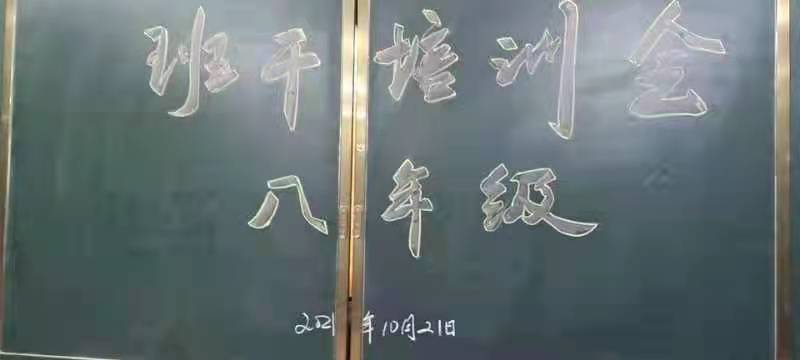 班干培训会
八年级
2021年10月21日